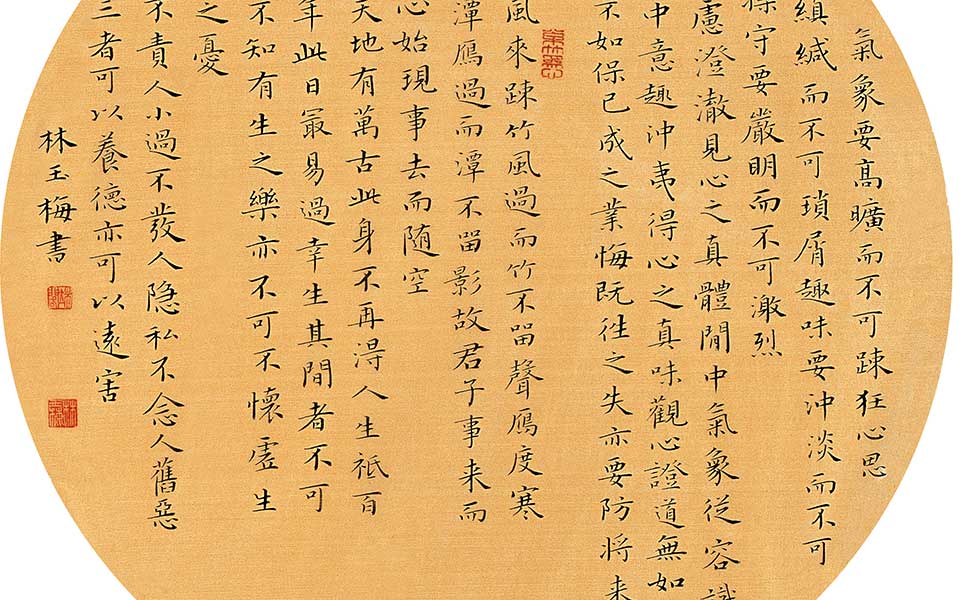 氣象要髙曠而不可踈狂心思
縝緘而不可瑣屑趣味要沖淡而不可
操守要嚴明而不可激烈
慮澄澈見心之真體閒中氣象從容識
中意趣沖夷得心之真味觀心證道無如
不如保已成之業悔既徃之失亦要防將来
風來踈竹風過而竹不留聲鴈度寒
潭鴈過而潭不留影故君子事来而
心始現事去而随空
天地有萬古此身不再得人生祗百
年此日最易過幸生其間者不可
不知有生之樂亦不可不懷虛生
之憂
不責人小過不發人隐私不念人舊惡
三者可以養德亦可以遠害
林玉梅書